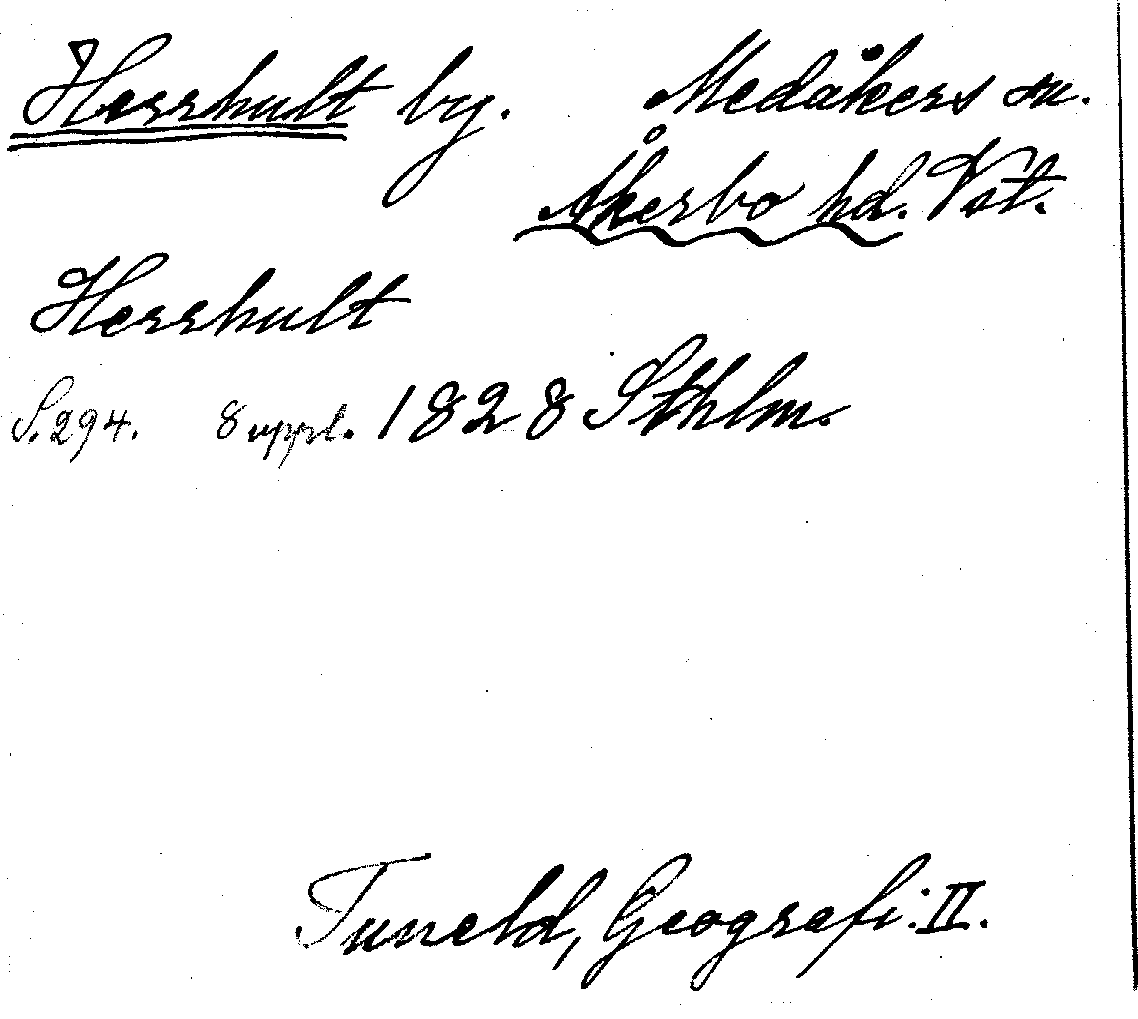 Herrhult by. Medåkers sn.
Åkerbo hd. Vst.
Herrhult
S. 294. 8 uppl. 1828 Sthlm.
Tuneld, Geografi. II.